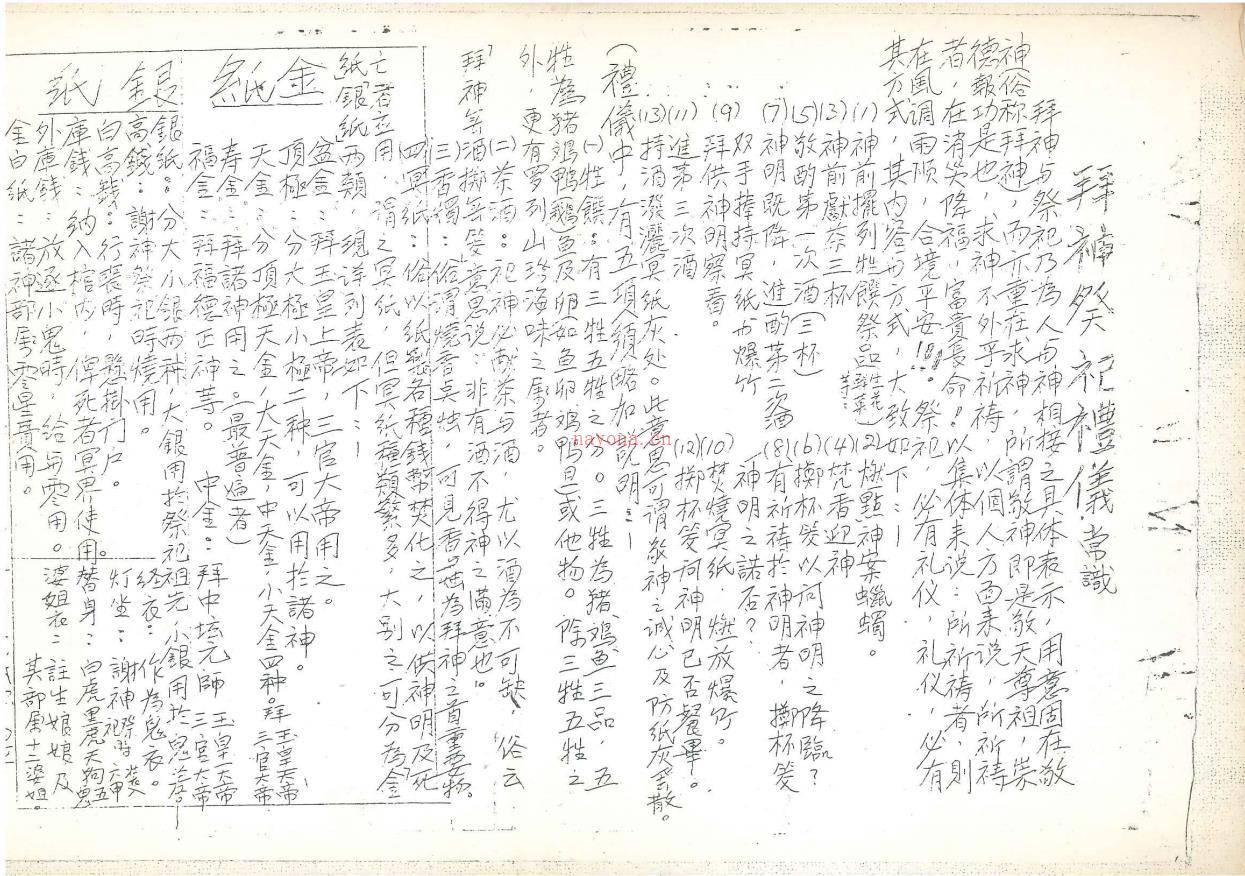 拜神祭祀禮儀常識
拜神与祭祀乃為人与神相接之具体表示,用意固在敬
神俗称拜神,而亦重在求神,所謂敬神即是敬天尊祖,崇
德報功是也,求神不外乎祈禱,以個人方面来说,所祈禱
者,在消災降福,富貴長命!以集体来说:所祈禱者,則
在風调雨顺,合境平安!!!。祭祀,必有礼仪,礼仪,必有
其方式,其内容与方式,大致如下:—
(1)神前擺列牲饌祭品(鮮花生菓等…)(2)燃點神案蠟蠋。
(3)神前獻茶三杯 (4)焚香迎神
(5)敬酌第一次酒(三杯) (6)擲杯筊以问神明之降臨?
(7)神明既降,進酌第二次酒 (8)有祈禱於神明者,擲杯筊
神明之諾否?
(9)双手捧持冥紙与爆竹
拜供神明察看。 (10)焚燒冥紙,燃放爆竹。
(11)進第三次酒 (12)擲杯筊问神明已否餐畢。
(13)持酒潑灑冥紙灰处。此意思可謂敬神之诚心及防紙灰飛散。
(禮儀中,有五項須略加説明:—
(一)牲饌:有三牲五牲之分。三牲為猪鸡鱼三品,五
牲為猪鸡鴨(鵝)鱼及卵如鱼卵鸡鴨旦)或他物。除三牲五牲之
外,更有罗列山珍海味之屬者。
(二)茶酒:祀神必献茶与酒,尤以酒為不可缺,俗云
「拜神無酒擲無筊」意思说:非有酒不得神之满意也。
(三)香燭:俗谓燒香点烛,可見香烛為拜神之首重要物。
(四)冥紙:俗以紙製各種錢幣焚化之,以供神明及死
亡者应用,谓之冥紙,但冥紙種類繁多,大别之可分為金
紙「銀紙」两類,現详列表如下:—
金紙
盆金:拜玉皇上帝,三官大帝用之。
頂極:分大極小極二种,可以用於諸神。
天金:分頂極天金,大天金,中天金,小天金四种。拜玉皇大帝 三官大帝
寿金:拜諸神用之。(最普遍者)
福金:拜福德正神等。
中金:拜中坛元師 玉皇大帝 三官大帝
銀紙
銀紙:分大小銀两种,大銀用於祭祀祖先,小銀用於鬼差。
高錢:謝神祭祀時燒用。
白高錢:行喪時,懸掛门户。
庫錢:納入棺内,俾死者冥界使用。
外庫錢:放逐小鬼時,給与零用。
金白紙:諸神部屬零星賞用。
经衣:作為鬼衣。
灯坐:謝神祭祀時
替身:白虎黑虎天狗五鬼
婆姐衣:註生娘娘及
其部属十二婆姐。
nayona.cn